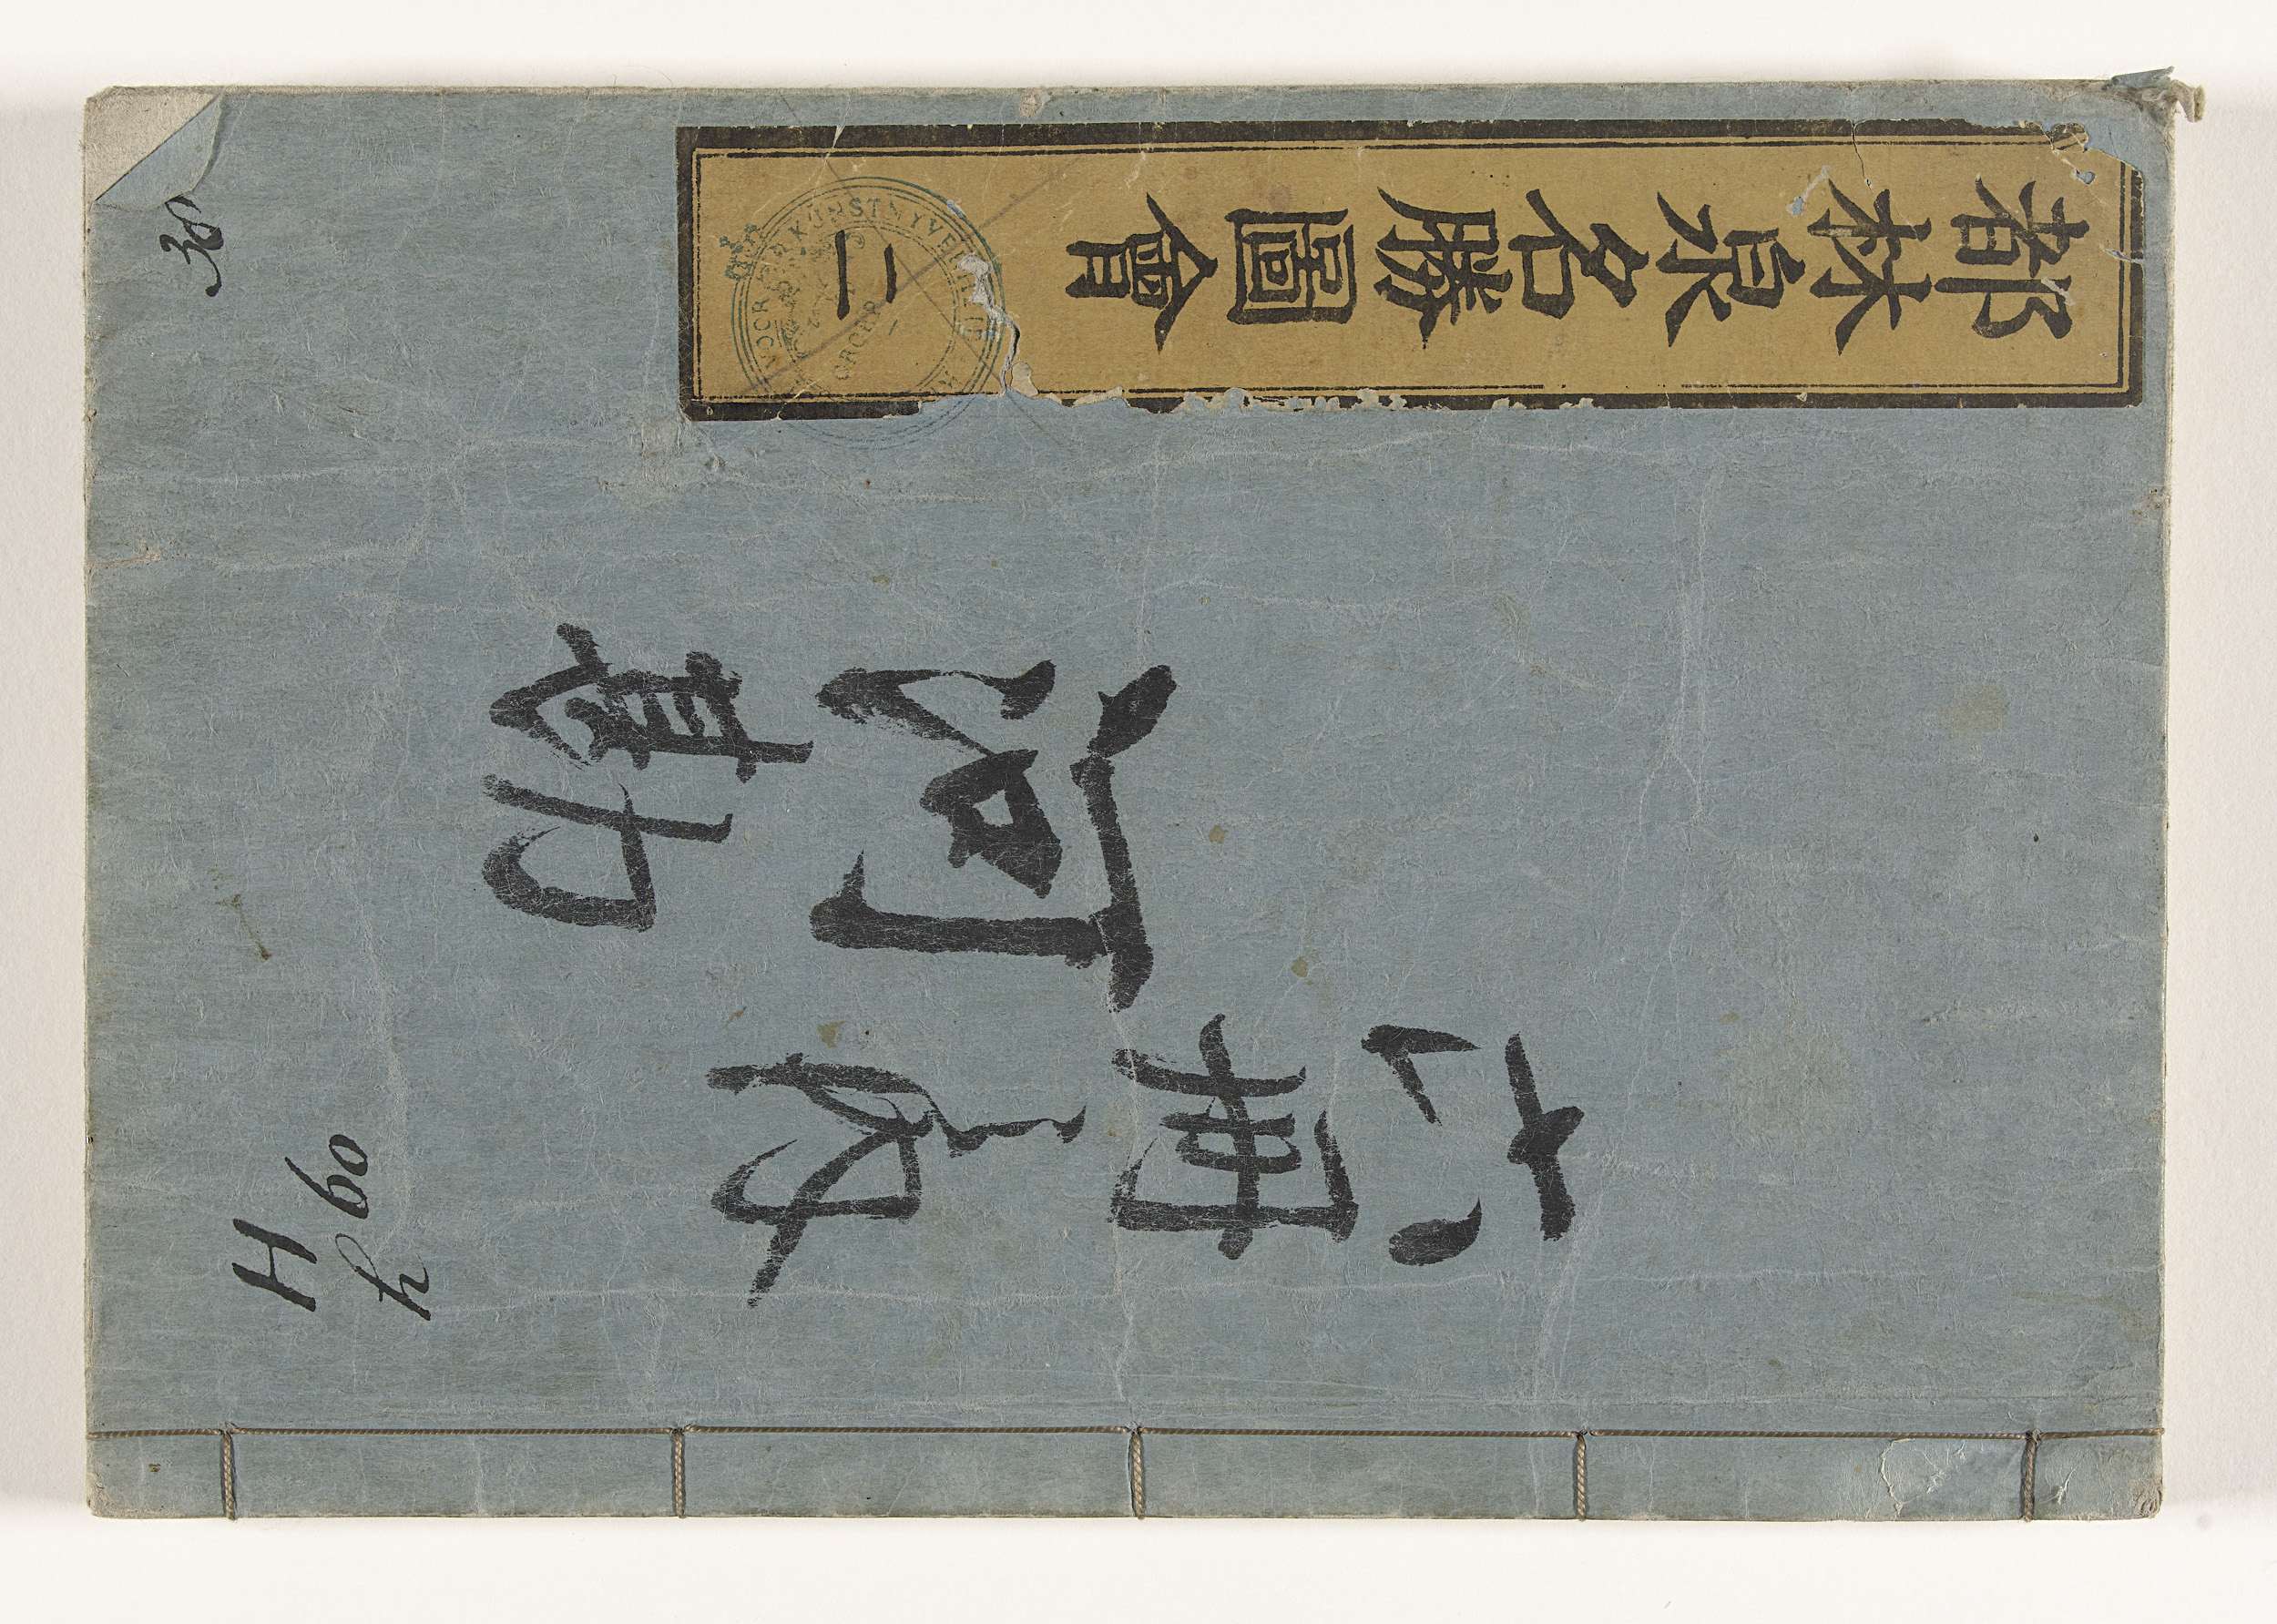 都林泉名勝圖會 二
六冊之内
河
H 60
h